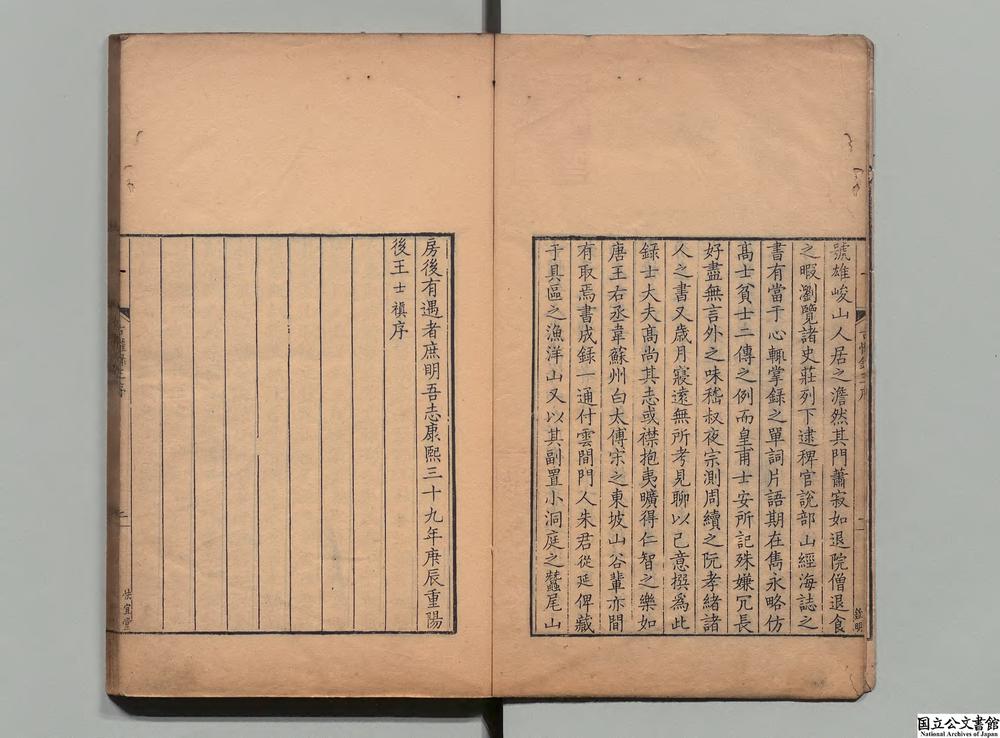 號雄峻山人居之澹然其門蕭寂如退院僧退食
之暇瀏覽諸史莊列下逮稗官說部山經海誌之
書有當于心輒掌錄之單詞片語期在雋永略仿
高士貧士二傳之例而皇甫士安所記殊嫌冗長
好盡無言外之味嵇叔夜宗測周續之阮孝緒諸
人之書又歲月寖遠無所考見聊以己意撰為此
錄士大夫高尚其志或襟抱夷曠得仁智之樂如
唐王右丞韋蘇州白太傅宋之東坡山谷輩亦間
有取焉書成錄一通付雲間門人朱君從延俾藏
于具區之漁洋山又以其副置小洞庭之蠶尾山
房後有遇者庶明吾志康熙三十九年庚辰重陽
後王士禛序
二
國立公文書館
National Archives of Japan